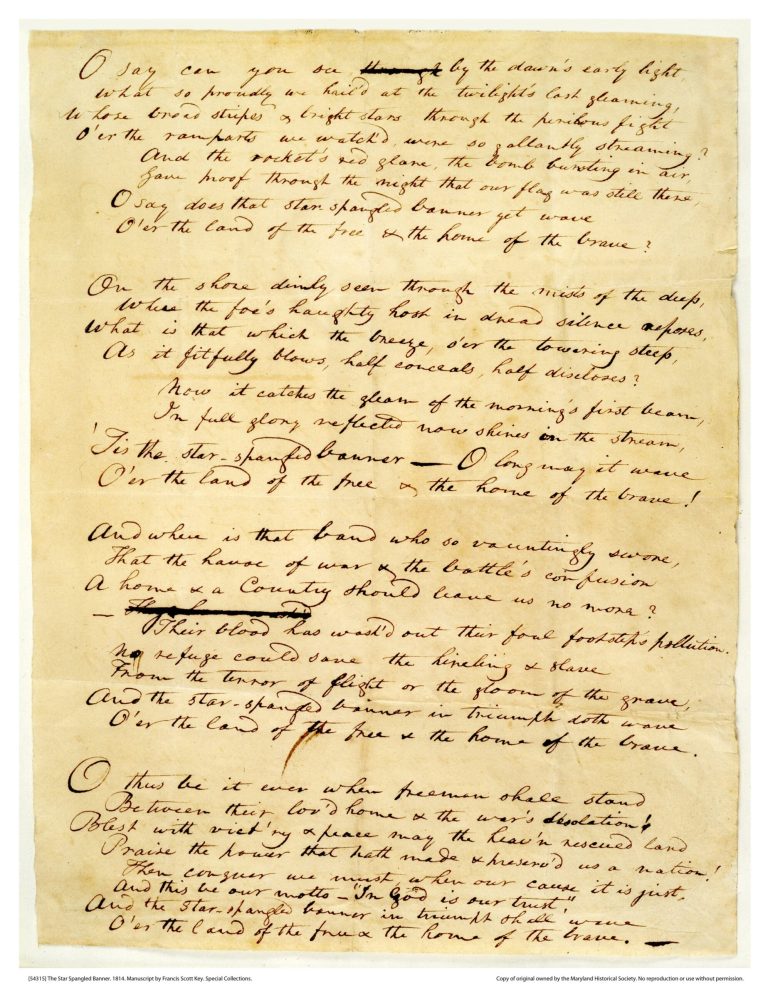 O say can you see ~~through~~ by the dawn's early light
What so proudly we hail'd at the twilight's last gleaming,
Whose broad stripes & bright stars through the perilous fight
O'er the ramparts we watch'd, were so gallantly streaming?
And the rocket's red glare, the bomb bursting in air,
Gave proof through the night that our flag was still there,
O say does that star-spangled banner yet wave
O'er the land of the free & the home of the brave?
On the shore dimly seen through the mists of the deep,
Where the foe's haughty host in dread silence reposes,
What is that which the breeze, o'er the towering steep,
As it fitfully blows, half conceals, half discloses?
Now it catches the gleam of the morning's first beam,
In full glory reflected now shines in the stream,
'Tis the star-spangled banner — O long may it wave
O'er the land of the free & the home of the brave!
And where is that band who so vauntingly swore,
That the havoc of war & the battle's confusion
A home & a Country should leave us no more?
—
Their blood has wash'd out their foul footstep's pollution.
No refuge could save the hireling & slave
From the terror of flight or the gloom of the grave,
And the star-spangled banner in triumph doth wave
O'er the land of the free & the home of the brave.
O thus be it ever when freemen shall stand
Between their lov'd home & the war's desolation!
Blest with vict'ry & peace may the heav'n rescued land
Praise the power that hath made & preserv'd us a nation!
Then conquer we must, when our cause it is just,
And this be our motto — "In God is our trust"
And the star-spangled banner in triumph shall wave
O'er the land of the free & the home of the brave. —
[54315] The Star Spangled Banner. 1814. Manuscript by Francis Scott Key. Special Collections.
Copy of original owned by the Maryland Historical Society. No reproduction or use without permission.